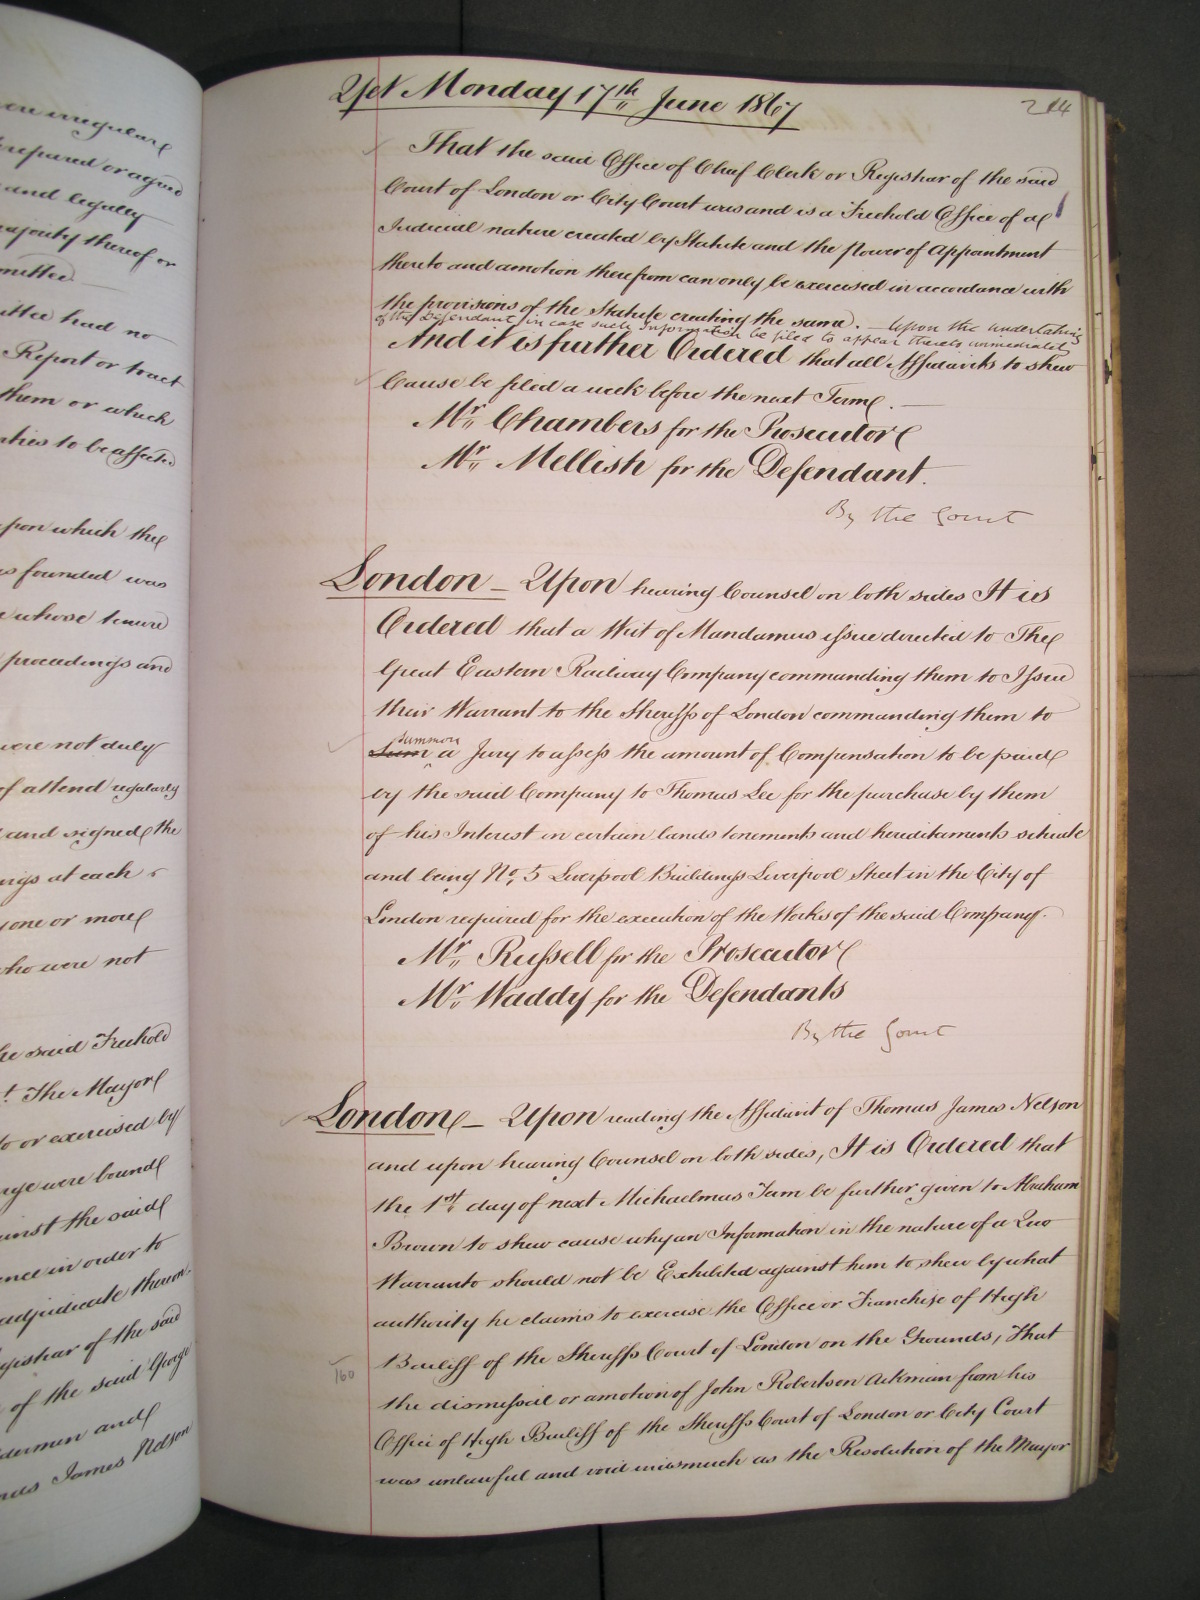 ere irregular
repared or agreed
and legally
majority thereof or
mittee
ittee had no
Report or tract
them or which
rties to be affected
pon which the
s founded was
whose tenure
proceedings and
were not duly
of attend regularly
and signed the
ings at each
one or more
who were not
he said Freehold
The Mayor
to or exercised by
nge were bound
ainst the said
ence in order to
adjudicate thereon
gistrar of the said
of the said George
dermen and
mas James Nelson
Yet Monday 17th June 1867
214
That the said Office of Chief Clerk or Registrar of the said
Court of London or City Court was and is a Freehold Office of a
Judicial nature created by Statute and the power of Appointment
thereto and amotion therefrom can only be exercised in accordance with
the provisions of the Statute creating the same. — Upon the undertaking
of the Defendant in case such Information be filed to appear thereto immediately
And it is further Ordered that all Affidavits to shew
Cause be filed a week before the next Term. —
Mr. Chambers for the Prosecutor
Mr. Mellish for the Defendant.
By the Court
London — Upon hearing Counsel on both sides It is
Ordered that a Writ of Mandamus issue directed to The
Great Eastern Railway Company commanding them to Issue
their Warrant to the Sheriffs of London commanding them to
summon
Sum a Jury to assess the amount of Compensation to be paid
by the said Company to Thomas Lee for the purchase by them
of his Interest in certain lands tenements and hereditaments situate
and being No. 5 Liverpool Buildings Liverpool Street in the City of
London required for the execution of the Works of the said Company.
Mr. Russell for the Prosecutor
Mr. Waddy for the Defendants
By the Court
London — Upon reading the Affidavit of Thomas James Nelson
and upon hearing Counsel on both sides, It is Ordered that
the 1st day of next Michaelmas Term be further given to Abraham
Brown to shew cause why an Information in the nature of a Quo
Warranto should not be Exhibited against him to shew by what
authority he claims to exercise the Office or Franchise of High
Bailiff of the Sheriffs Court of London on the Grounds, That
160
the dismissal or amotion of John Robertson Aikman from his
Office of High Bailiff of the Sheriffs Court of London or City Court
was unlawful and void inasmuch as the Resolution of the Mayor